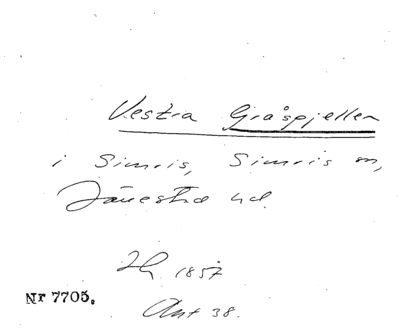 Vestra Gråspjellen
i Simris, Simris sn,
Järrestad hd.
Ih 1857
Nr 7705.
Ant 38.